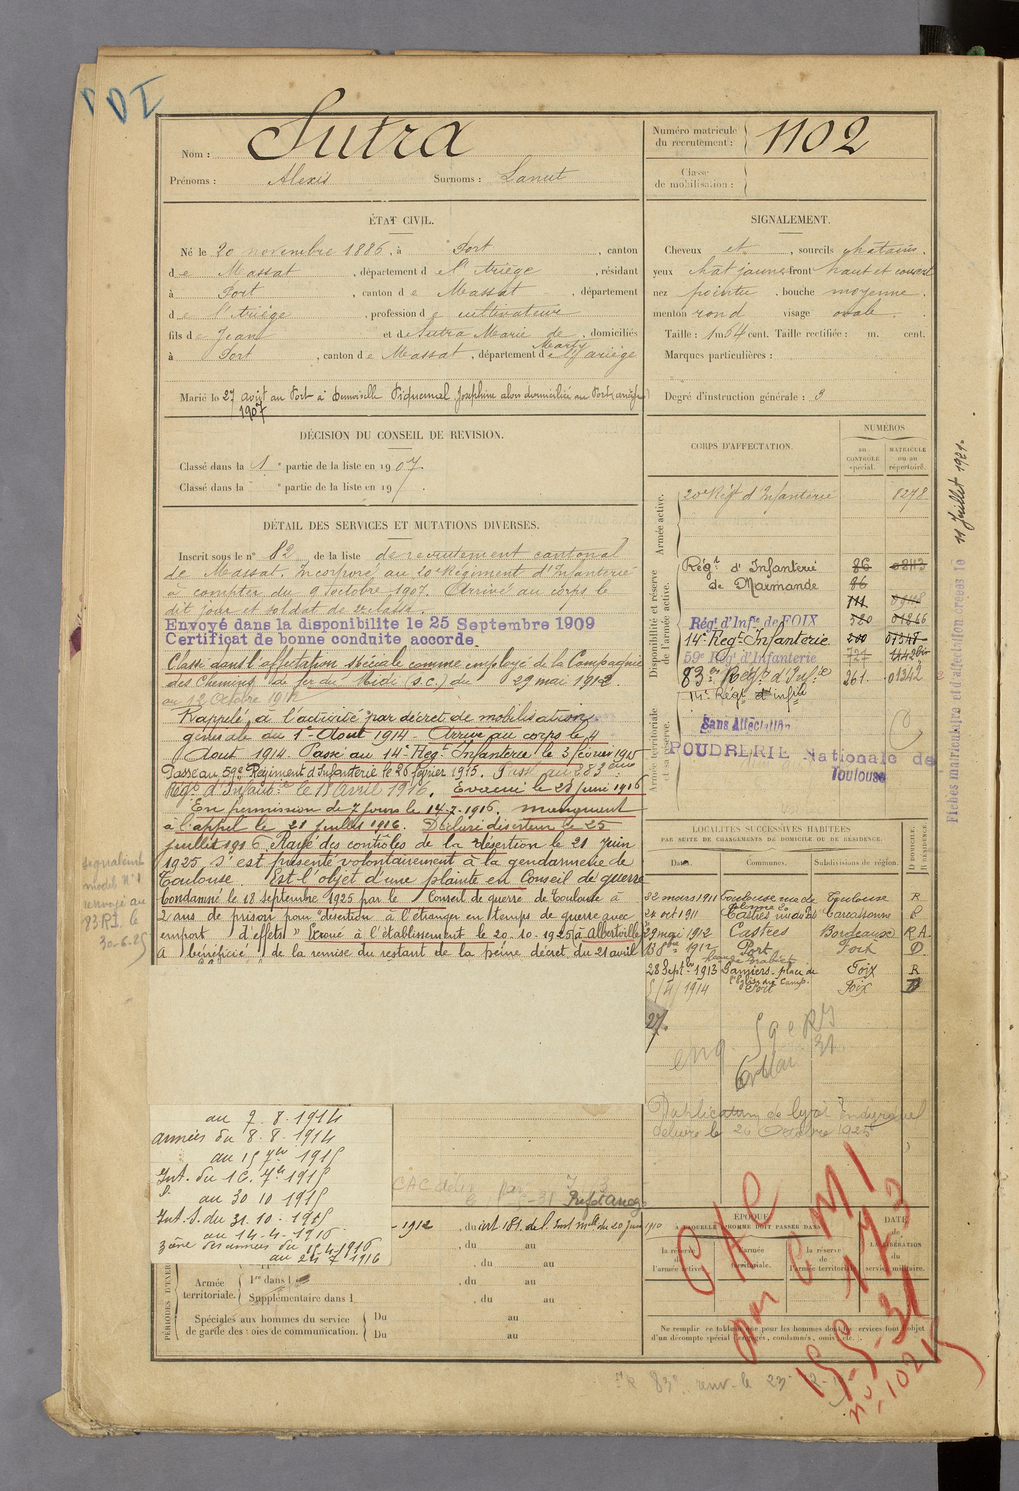 Nom : Sutra
Prénoms : Alexis Surnoms : Lanut
Numéro matricule du recrutement : 1102
Classe de mobilisation :
ÉTAT CIVIL.
Né le 20 novembre 1886, à Port, canton
de Massat, département de l'Ariège, résidant
à Port, canton de Massat, département
de l'Ariège, profession de cultivateur
fils de Jean et de Sutra Marie de Marty, domiciliés
à Port, canton de Massat, département de l'ariège
Marié le 27 août au Port à Demoiselle Piquemal Joséphine alors domiciliée au Port (ariège)
1907
SIGNALEMENT.
Cheveux et, sourcils chatains,
yeux chat jaunes front haut et couvert
nez pointu, bouche moyenne,
menton rond visage ovale.
Taille : 1m54 cent. Taille rectifiée : m. cent.
Marques particulières :
Degré d'instruction générale : 3
DÉCISION DU CONSEIL DE REVISION.
Classé dans la 1e partie de la liste en 1907.
Classé dans la e partie de la liste en 19 .
DÉTAIL DES SERVICES ET MUTATIONS DIVERSES.
Inscrit sous le n° 82 de la liste de recrutement cantonal
de Massat. Incorporé au 20e Régiment d'Infanterie
à compter du 9 octobre 1907. Arrivé au corps le
dit jour et soldat de 2e classe.
Envoyé dans la disponibilité le 25 Septembre 1909
Certificat de bonne conduite accordé.
Classé dans l'affectation spéciale comme employé de la Compagnie
des Chemins de fer du Midi (S.C.) du 29 mai 1912.
au 12 Octobre 1912
Rappelé à l'activité par décret de mobilisation
générale du 1er Août 1914. Arrivé au corps le 4
Août 1914. Passé au 14e Regt Infanterie le 3 février 1915
Passé au 59e Régiment d'Infanterie le 26 février 1915. Passé au 83ème
Régt d'Infanterie le 18 avril 1916. Evacué le 23 juin 1916
En permission de 7 jours le 14-7-1916. manquant
à l'appel le 21 juillet 1916. Déclaré déserteur le 25
juillet 1916. Rayé des contrôles de la désertion le 21 juin
1925. S'est présenté volontairement à la gendarmerie de
Toulouse. Est l'objet d'une plainte en Conseil de guerre
Condamné le 18 septembre 1925 par le Conseil de guerre de Toulouse à
2 ans de prison pour "désertion à l'étranger en temps de guerre avec
emport d'effets" Ecroué à l'établissement le 20-10-1925 (à Albertville)
A bénéficié de la remise du restant de la peine décret du 21 avril
signalement
modèle N° 1
renvoyé au
83 RI. le
30-6-25
CORPS D'AFFECTATION.
NUMÉROS
au CONTRÔLE spécial.
MATRICULE ou au répertoire.
Armée active.
20e Régt d'Infanterie 8278
Disponibilité et réserve de l'armée active.
Régt d'Infanterie 86 0843
de Marmande 86
111
Régt d'Infie de FOIX 01866
14e Regt Infanterie 200 01348
59e Rég' d'Infanterie 727
83e Régt d'Infie 261. 01342
14e Régt d'infie
Armée territoriale et sa réserve.
Sans Affectation
POUDRERIE Nationale de
Toulouse
Fiches matriculaire et d'affectation créées le 11 Juillet 1921.
LOCALITÉS SUCCESSIVES HABITÉES
PAR SUITE DE CHANGEMENTS DE DOMICILE OU DE RÉSIDENCE.
Dates. Communes. Subdivisions de région. D DOMICILE. R RÉSIDENCE
22 mars 1911 Toulouse rue de Toulouse R
24 oct 1911 Castres Carcassonne R
29 mai 1912 Castres Bordeaux R A.
1912 Port Foix D.
28 Septbre 1913 Pamiers place de Foix R
l'Eglise du Camp.
1914 Port Foix D
27.
Duplicatum
délivré le 26 Octobre 1925
au 7.8.1914
armées du 8.8.1914
au 15 7bre 1915
Int. du 16. 7bre 1915
au 30 10 1915
Int. S. du 31.10.1915
au 14-4-1916
zône des armées du 15-4-1916
au 24 7 1916
CAC
Pref d'Arieg
1912, du art. 181. de l'Inst mlle du 20 juin 1910
, du au
, du au
, du au
, du au
PÉRIODES D'EXER
Armée territoriale.
1re dans l
Supplémentaire dans l
Spéciales aux hommes du service de garde des voies de communication.
Du au
Du au
ÉPOQUE
À LAQUELLE L'HOMME DOIT PASSER DANS
la réserve de l'armée active.
l'armée territoriale.
la réserve de l'armée territoriale.
DATE de LA LIBÉRATION du service militaire.
Ne remplir ce tableau que pour les hommes dont les services font l'objet
d'un décompte spécial (engagés, condamnés, omis, etc.).
CAC
par CM1
173
15-5-31
n° 10215